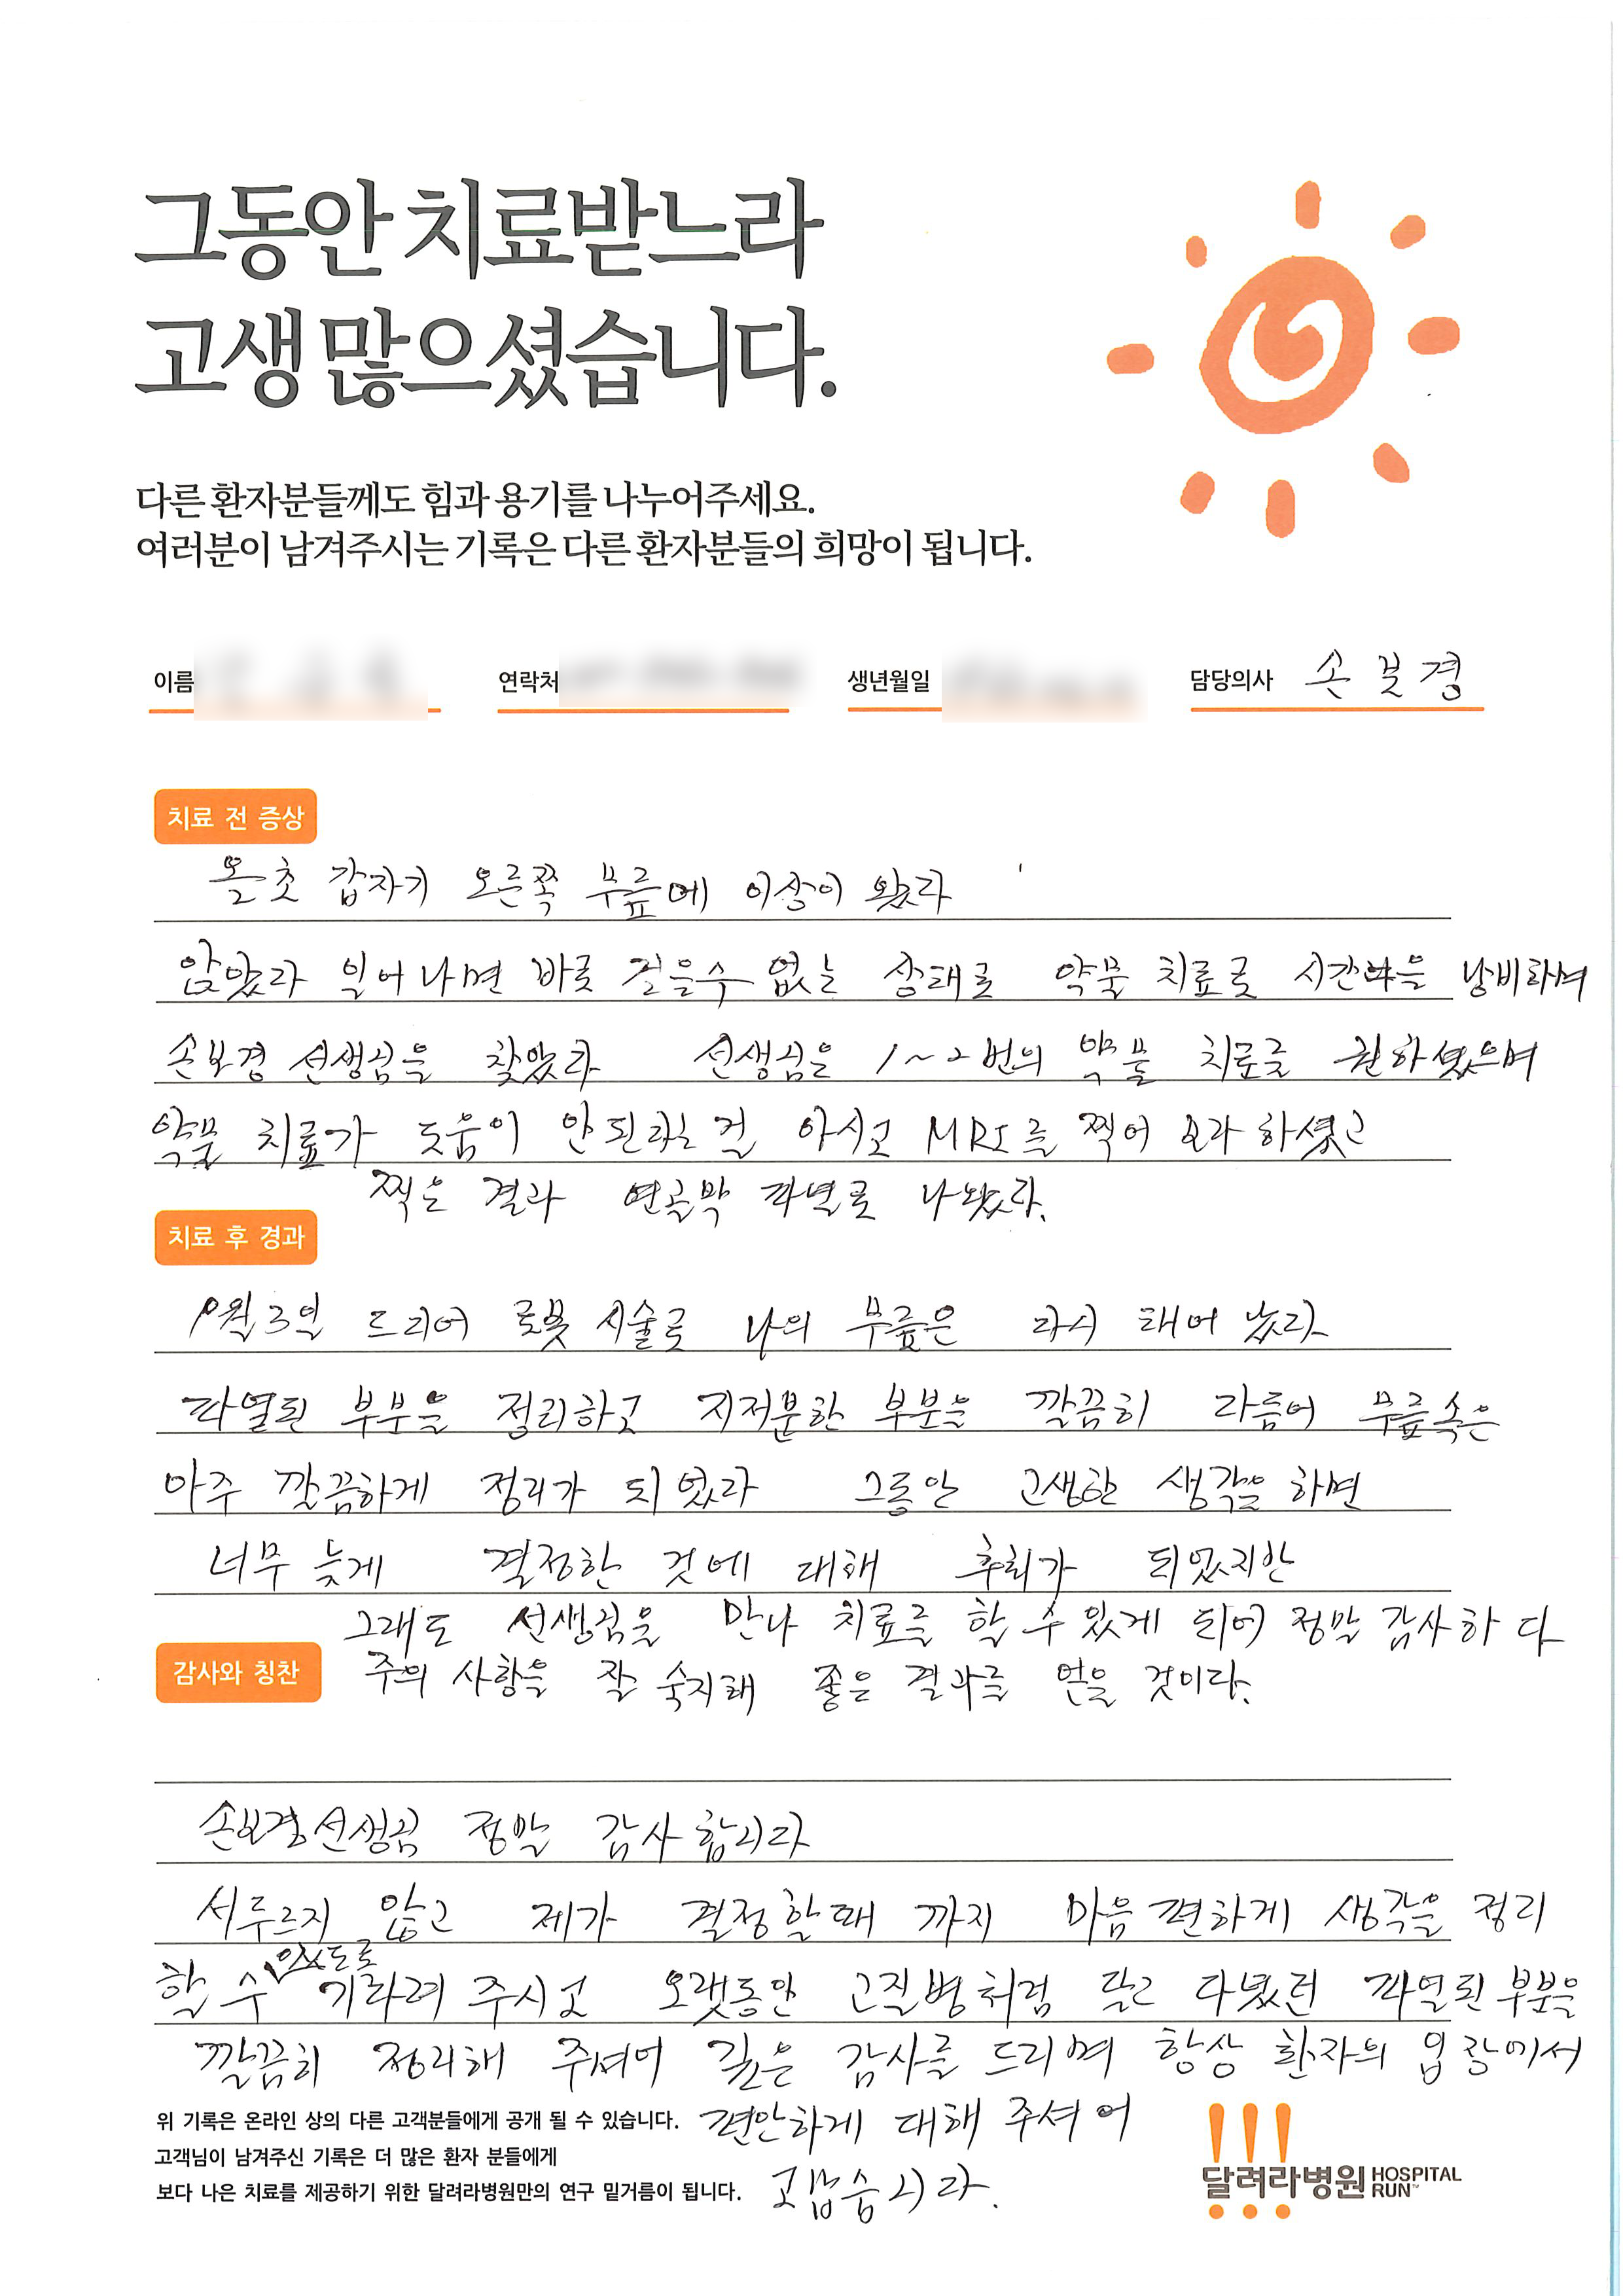 그동안 치료받느라
고생 많으셨습니다.
다른 환자분들께도 힘과 용기를 나누어주세요.
여러분이 남겨주시는 기록은 다른 환자분들의 희망이 됩니다.
이름 연락처 생년월일 담당의사 손보경
치료 전 증상
올초 갑자기 오른쪽 무릎에 이상이 왔다
앉았다 일어나면 바로 걸을수 없는 상태로 약물 치료로 시간을 낭비하며
손보경 선생님을 찾았다 선생님은 1~2번의 약물 치료를 권하셨으며
약물 치료가 도움이 안된다는걸 아시고 MRI를 찍어 오라 하셨고
찍은 결과 연골막 파열로 나왔다.
치료 후 경과
9월3일 드디어 로봇 시술로 나의 무릎은 다시 태어 났다
파열된 부분을 정리하고 지저분한 부분을 깔끔히 다듬어 무릎속은
아주 깔끔하게 정리가 되었다 그동안 고생한 생각을 하면
너무 늦게 결정한 것에 대해 후회가 되었지만
그래도 선생님을 만나 치료를 할 수 있게 되어 정말 감사하다
감사와 칭찬 주의 사항을 잘 숙지해 좋은 결과를 얻을 것이다.
손보경선생님 정말 감사합니다
서두르지 않고 제가 결정할때 까지 마음 편하게 생각을 정리
할 수 있도록 기다려 주시고 오랫동안 고질병처럼 달고 다녔던 파열된 부분을
깔끔히 정리해 주셔어 깊은 감사를 드리며 항상 환자의 입장에서
편안하게 대해 주셔어
고맙습니다.
위 기록은 온라인 상의 다른 고객분들에게 공개 될 수 있습니다.
고객님이 남겨주신 기록은 더 많은 환자 분들에게
보다 나은 치료를 제공하기 위한 달려라병원만의 연구 밑거름이 됩니다.
달려라병원 HOSPITAL RUN